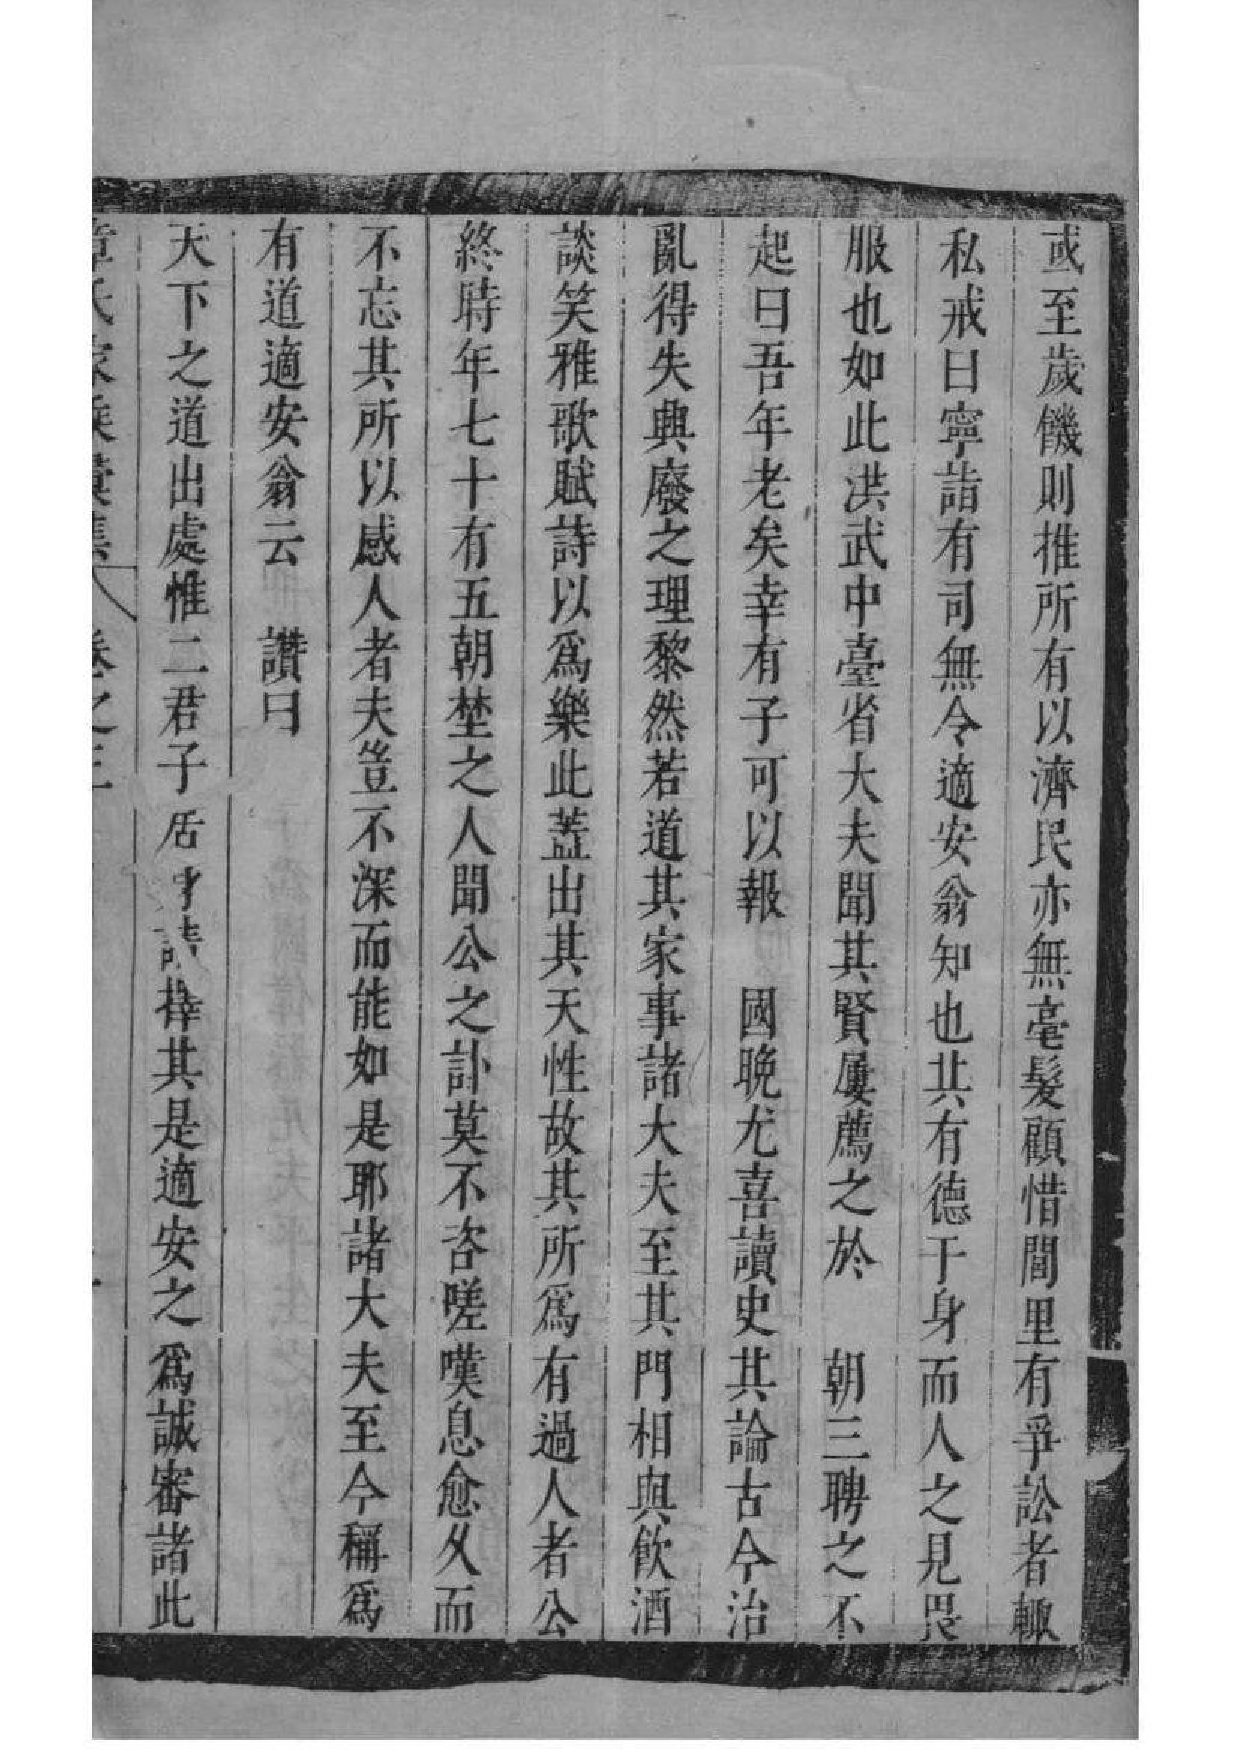 或至歲饑則推所有以濟民亦無毫髮顧惜閭里有爭訟者輙
私戒曰寧詣有司無令適安翁知也其有德于身而人之見畏
服也如此洪武中臺省大夫聞其賢屢薦之於 朝三聘之不
起曰吾年老矣幸有子可以報 國晚尤喜讀史其論古今治
亂得失興廢之理黎然若道其家事諸大夫至其門相與飲酒
談笑雅歌賦詩以爲樂此蓋出其天性故其所爲有過人者公
終時年七十有五朝埜之人聞公之訃莫不咨嗟嘆息愈久而
不忘其所以感人者夫豈不深而能如是耶諸大夫至今稱爲
有道適安翁云 讚曰
天下之道出處惟二君子 擇其是適安之爲誠審諸此
章氏家乘 集 卷之三